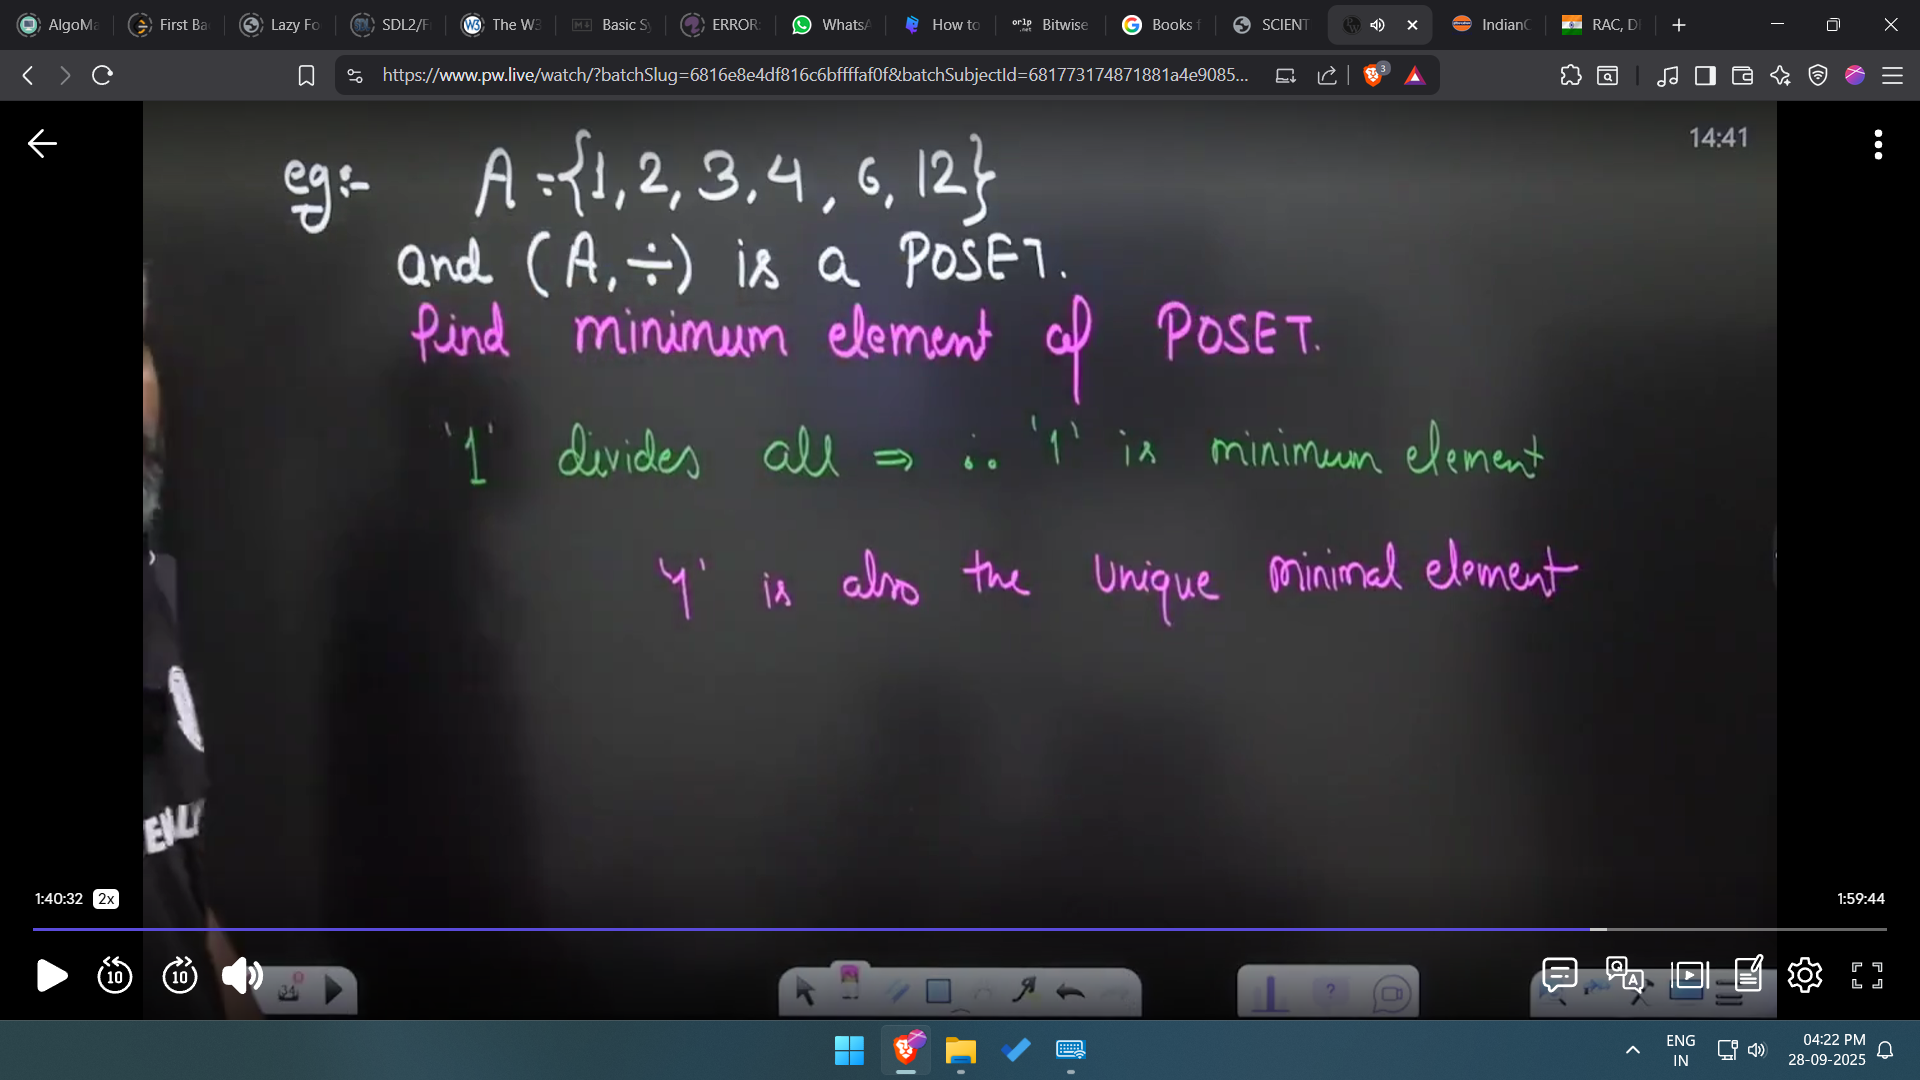 AlgoMa
First Ba
Lazy Fo
SDL2/F
The W3
Basic Sy
ERROR:
WhatsA
How to
orlp .net
Bitwise
Books f
SCIENT
IndianO
RAC, D
https://www.pw.live/watch/?batchSlug=6816e8e4df816c6bffffaf0f&batchSubjectId=681773174871881a4e9085...
3
14:41
eg:- A = {1, 2, 3, 4, 6, 12}
and (A, ÷) is a POSET.
find minimum element of POSET.
'1' divides all ⇒ ∴ '1' is minimum element
'1' is also the unique minimal element
1:40:32 2x
1:59:44
10
10
34
?
ENG
IN
04:22 PM
28-09-2025